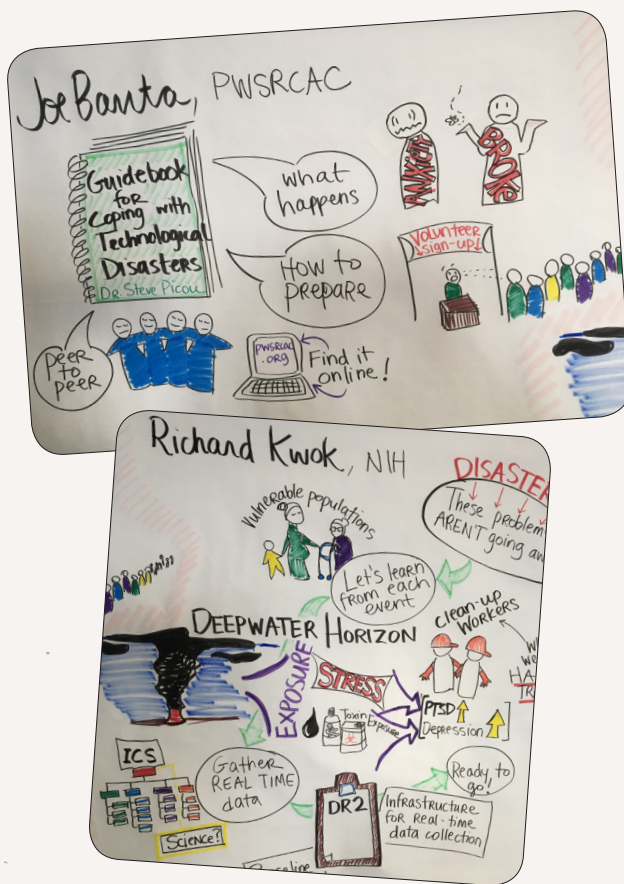 Joe Banta, PWSRCAC
Guidebook
for
Coping with
Technological
Disasters
Dr. Steve Picou
what
happens
How to
prepare
ANXIETY
BROKE
Volunteer
sign-up!
peer
to
peer
PWSRCAC
.org
Find it
online!
Richard Kwok, NIH
Vulnerable populations
DISASTER
These problem
AREN'T going aw
Let's learn
from each
event
DEEPWATER HORIZON
clean-up
WORKERS
EXPOSURE
STRESS
Toxin Exposure
PTSD
Depression
ICS
Science?
Gather
REAL TIME
data
DR2
Ready, to
go!
Infrastructure
for real-time
data collection
Baseline